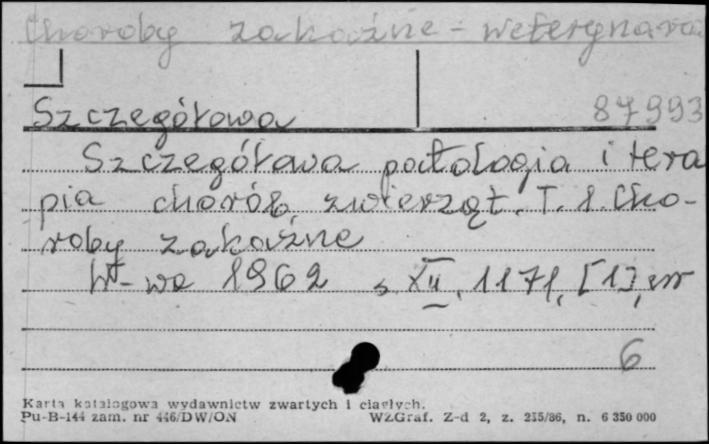 Choroby zakaźne - weterynaria
Szczegółowa 87993
Szczegółowa patologia i tera
pia chorób zwierząt. T. 1. Cho-
roby zakaźne
W-wa 1962 s XII, 1171, [1], err
6
Karta katalogowa wydawnictw zwartych i ciągłych.
Pu-B-144 zam. nr 446/DW/ON WZGraf. Z-d 2, z. 255/86, n. 6 350 000